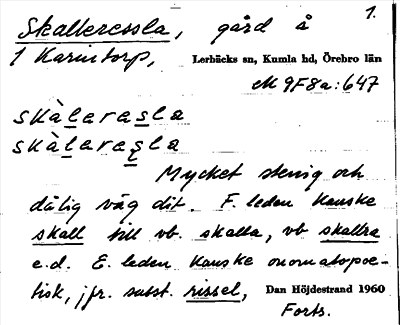 1.
Skalleressla, gård å
1 Karintorp, Lerbäcks sn, Kumla hd, Örebro län
M 9F8a:647
skàlarasla
skàlarasla
Mycket stenig och
dålig väg dit. F. leden kanske
skall till vb. skalla, vb skallra
e.d. E. leden kanske onomatopoe-
tisk, jfr. subst. rissel, Dan Höjdestrand 1960
Forts.